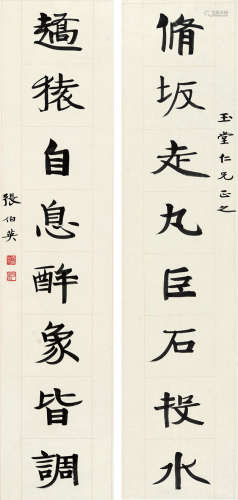 玉堂仁兄正之
脩坂走丸巨石投水
趫猿自息酔象皆調
張伯英